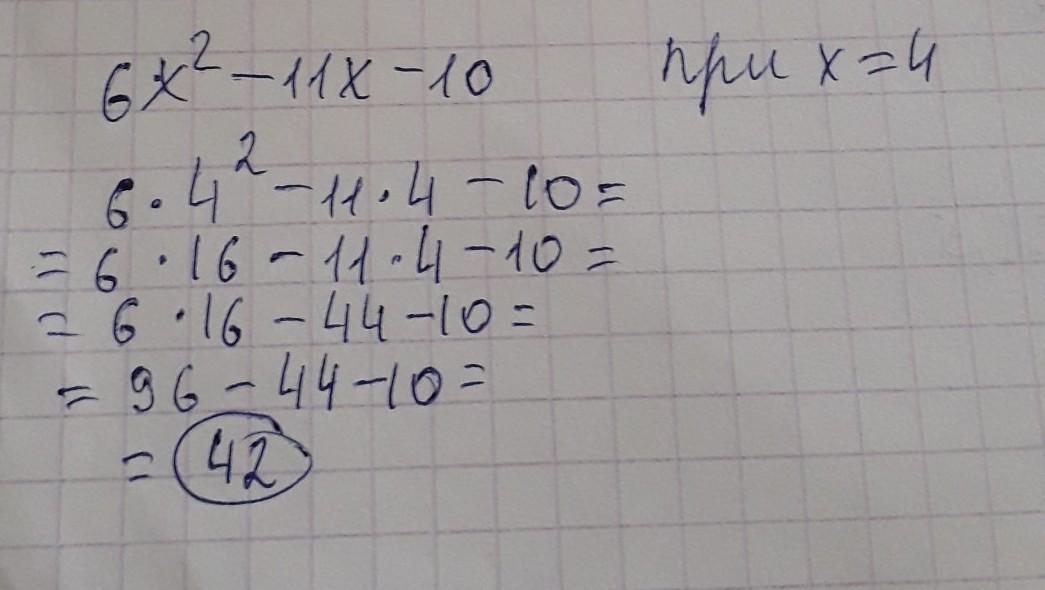 6x² - 11x - 10 при x = 4
6 · 4² - 11 · 4 - 10 =
= 6 · 16 - 11 · 4 - 10 =
= 6 · 16 - 44 - 10 =
= 96 - 44 - 10 =
= 42